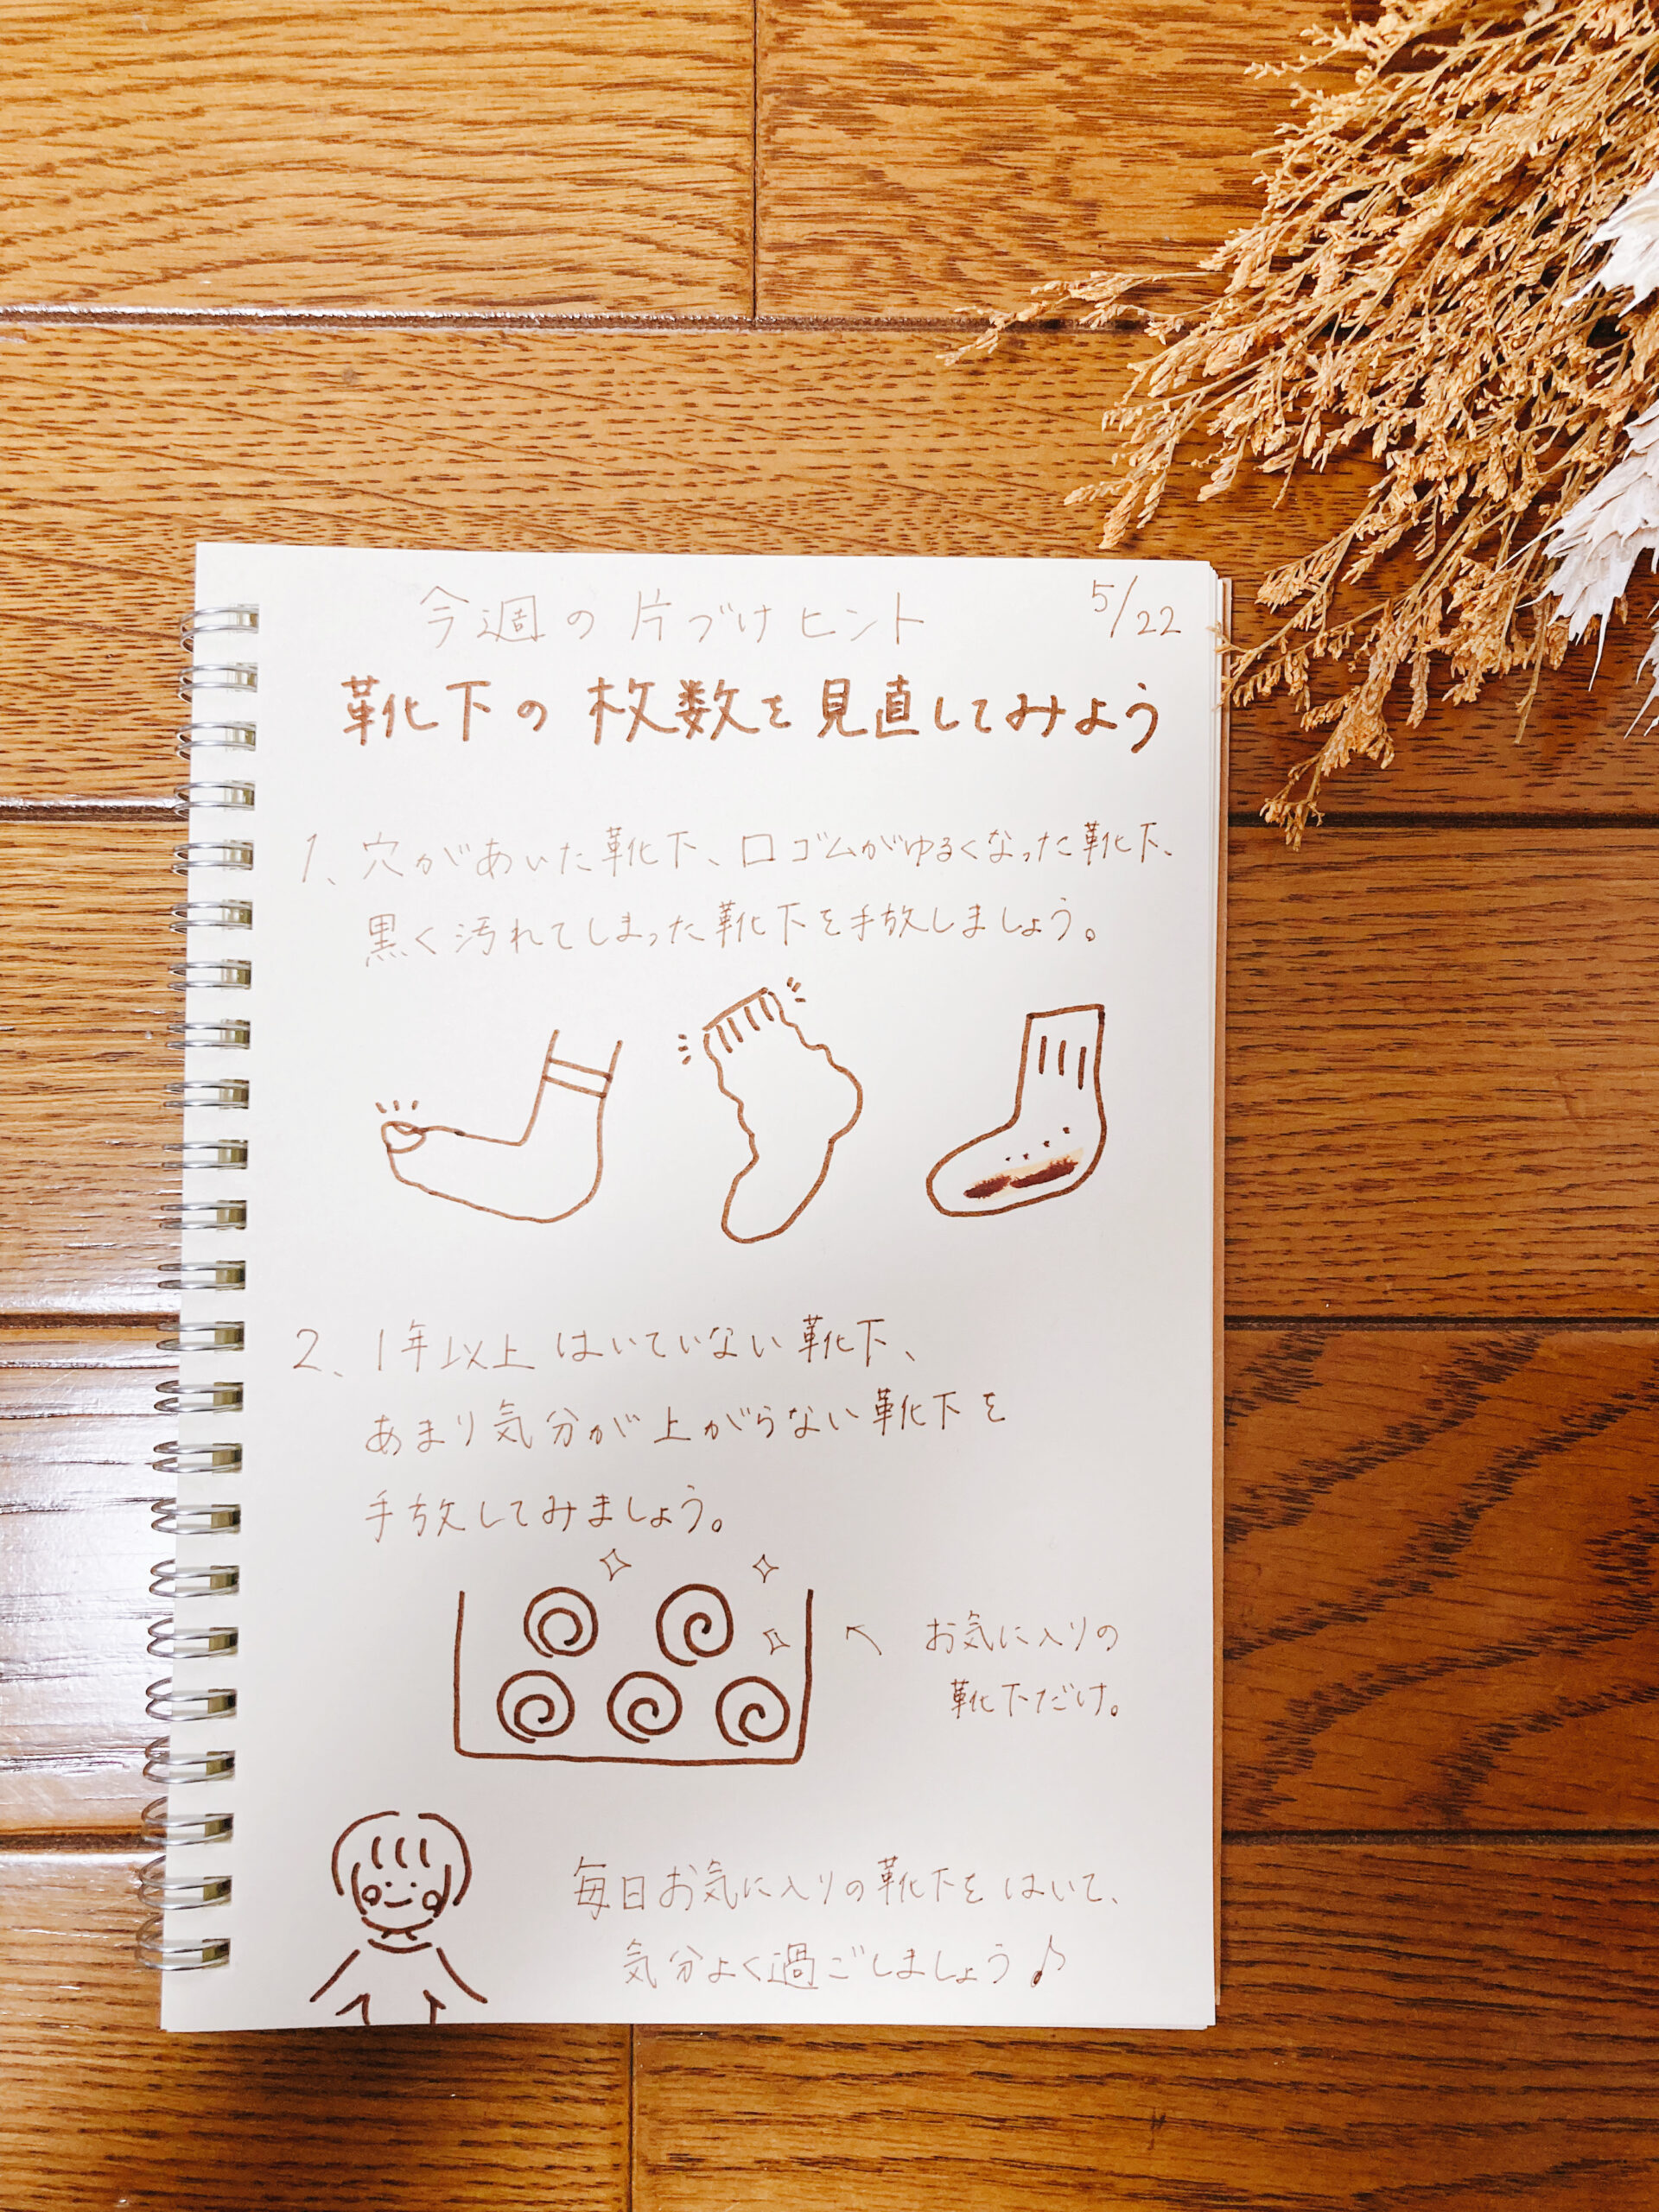 今週の片づけヒント
5/22
靴下の枚数を見直してみよう
1、穴があいた靴下、口ゴムがゆるくなった靴下、
黒く汚れてしまった靴下を手放しましょう。
2、1年以上はいていない靴下、
あまり気分が上がらない靴下を
手放してみましょう。
お気に入りの
靴下だけ。
毎日お気に入りの靴下をはいて、
気分よく過ごしましょう♪